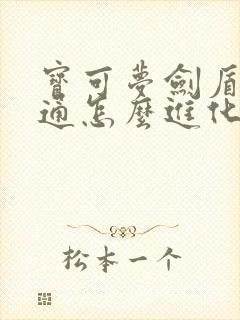 寶可夢劍盾
通怎麼進化
松本一个